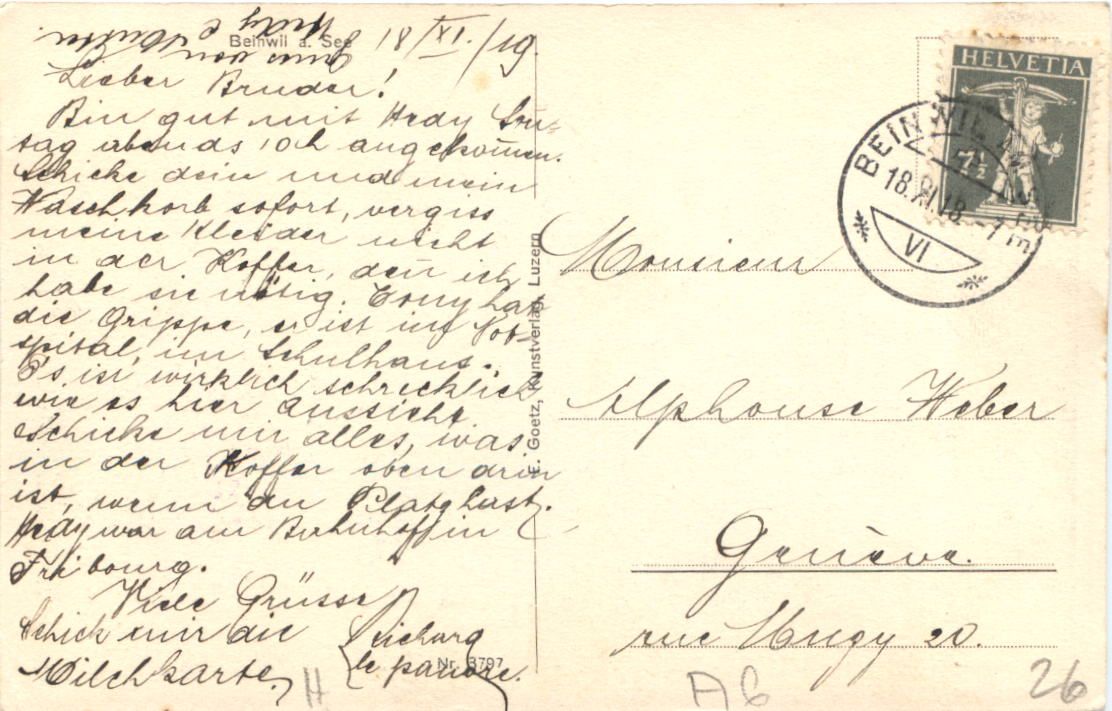 Beinwil a. See
18/XI./19.
Lieber Bruder!
Bin gut mit Hedy Son-
tag abends 10h angekom̄en.
Schicke dein und mein
Waschkorb sofort, vergiss
meine Kleider nicht
in der Koffer, den̄ ich
habe sie nötig. Tony hat
die Grippe, er ist im Not-
spital, im Schulhaus.
Es ist wirklich schrecklich
wie es hier aussieht.
Schicke mir alles, was
in der Koffer oben drin
ist, wenn du Platz hast.
Hedy war am Bahnhoff in
Fribourg.
Viele Grüsse
Schick mir die
Milchkarte,
le pauvre.
von
Hedy &
E. Goetz, Kunstverlag, Luzern
Nr. 3797
HELVETIA
7½
BEINWIL
18.XI.18.
VI
Monsieur
Alphonse Weber
Genève.
rue Mugy 20.
H
A6
26